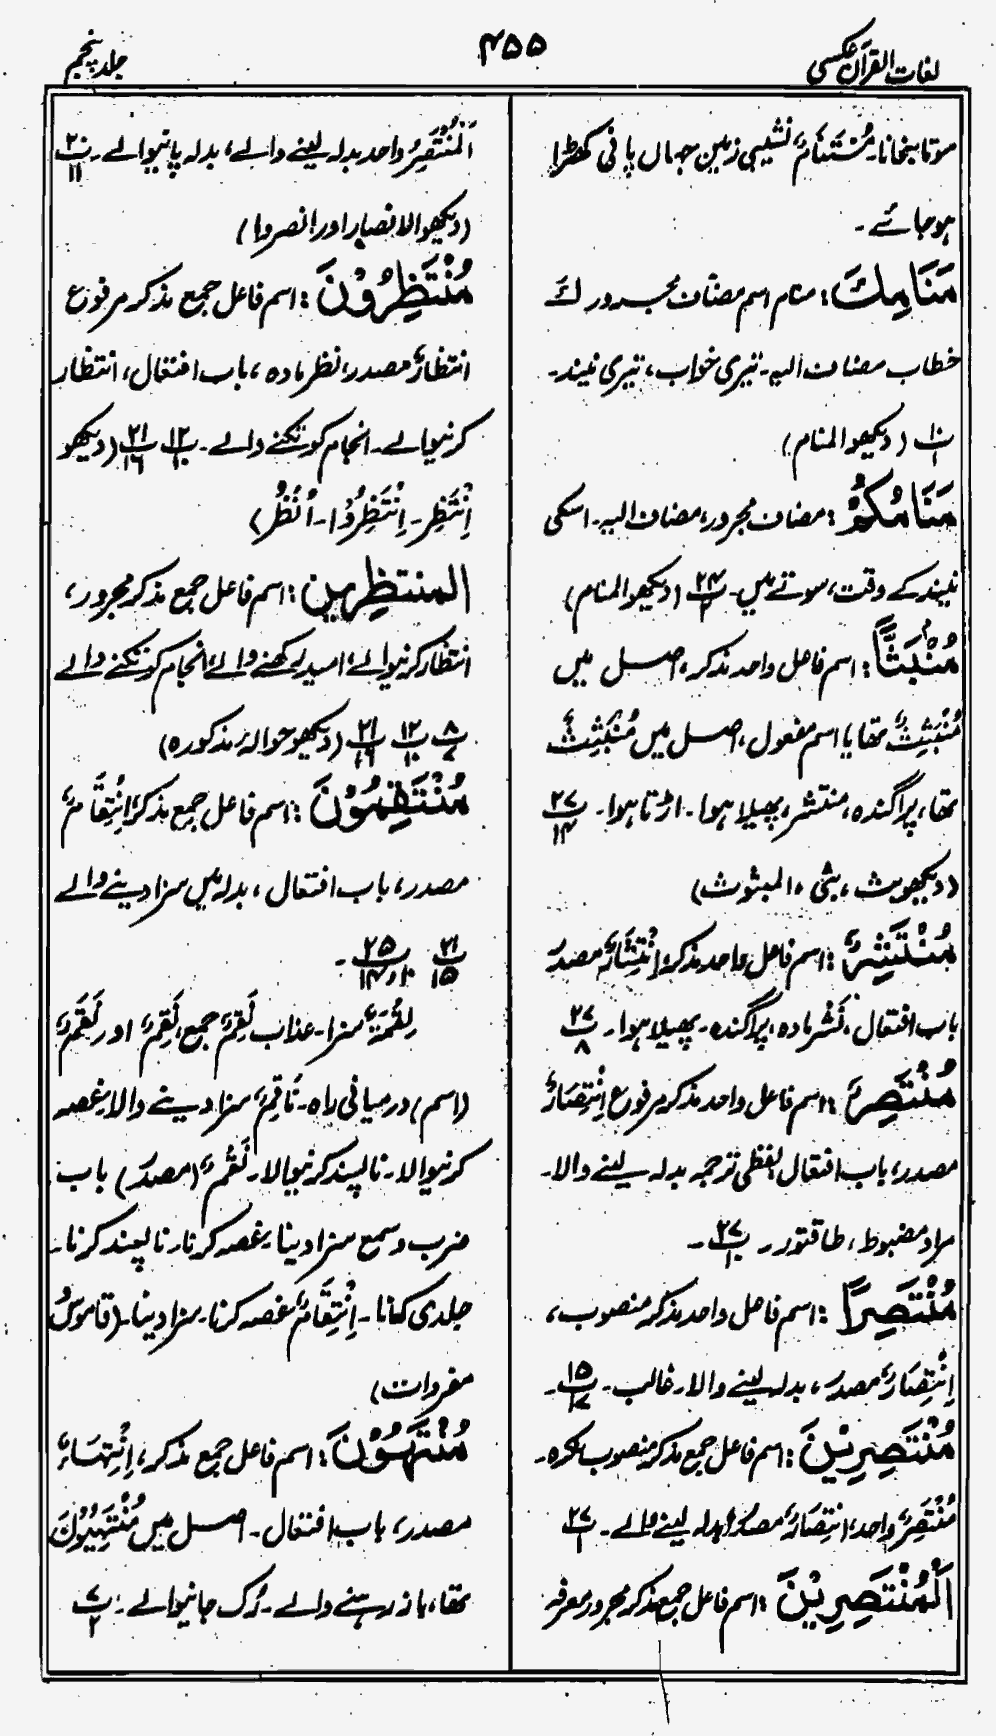 لغات القرآن عکسی
۴۵۵
جلد پنجم
موتا بنخانا۔ مُسْتَنَامٌ، نشیبی زمین جہاں پانی کھڑا
ہو جائے۔
مَنَامِکَ: منام اسم مضاف مجرور لکَ
خطاب مضاف الیہ۔ تیری خواب، تیری نیند۔
(دیکھو المنام)
مَنَامُکُمْ: مضاف مجرور، مضاف الیہ۔ اسکی
نیند کے وقت، سوتے میں۔ (دیکھو المنام)
مُنْۢبَثًّا: اسم فاعل واحد مذکر، اصل میں
مُنْبَثِثٌ تھا یا اسم مفعول، اصل میں مُنْبَثَثٌ
تھا، پراگندہ، منتشر، پھیلا ہوا۔ اڑتا ہوا۔ ۲۷/۱۴
(دیکھو بث، بثی، المبثوث)
مُنْتَشِرٌ: اسم فاعل واحد مذکر، اِنْتِشَارٌ مصدر
باب افتعال، نَشْر مادہ، پراگندہ۔ پھیلا ہوا۔ ۲۷/۸
مُنْتَصِرٌ: اسم فاعل واحد مذکر مرفوع اِنْتِصَارٌ
مصدر، باب افتعال لفظی ترجمہ بدلہ لینے والا۔
مراد مضبوط، طاقتور۔ ۲۷/۱۰۔
مُنْتَصِرًا: اسم فاعل واحد مذکر منصوب،
اِنْتِصَارٌ مصدر، بدلہ لینے والا۔ غالب۔ ۱۵/۱۷۔
مُنْتَصِرِیْنَ: اسم فاعل جمع مذکر منصوب نکرہ۔
مُنْتَصِرٌ واحد، اِنْتِصَارٌ مصدر بدلہ لینے والے۔ ۲۷/۱
اَلْمُنْتَصِرِیْنَ: اسم فاعل جمع مذکر مجرور معرفہ
اَلْمُنْتَصِرُ واحد بدلہ لینے والے، بدلہ پانیوالے۔ ۲۰/۱۱
(دیکھو الانصار اور انصروا)
مُنْتَظِرُوْنَ: اسم فاعل جمع مذکر مرفوع
انتظارٌ مصدر، نظر مادہ، باب افتعال، انتظار
کرنیوالے۔ انجام کو تکنے والے۔ ۱۲/۱۰ ۲۱/۱۶ (دیکھو
اِنْتَظِر۔ اِنْتَظِرُوْا۔ اُنْظُرْ)
المنتظِرین: اسم فاعل جمع مذکر مجرور،
انتظار کرنیوالے، امید رکھنے والے، انجام کو تکنے والے
۸ ۱۲/۱۰ ۲۱/۱۶ (دیکھو حوالۂ مذکورہ)
مُنْتَقِمُوْنَ: اسم فاعل جمع مذکر، اِنْتِقَامٌ
مصدر، باب افتعال، بدلہ میں سزا دینے والے
۲۱/۱۵ ۲۵/۱۰ و ۱۴۔
نِقْمَۃٌ سزا۔ عذاب نِقَمٌ جمع، نَقِمٌ اور نَقَمٌ
(اسم) درمیانی راہ۔ نَاقِمٌ سزا دینے والا۔ غصہ
کرنیوالا۔ ناپسند کرنیوالا۔ نَقْمٌ (مصدر) باب
ضرب و سمع سزا دینا۔ غصہ کرنا۔ ناپسند کرنا۔
جلدی کھانا۔ اِنْتِقَامٌ غصہ کرنا۔ سزا دینا۔ (قاموس
مفردات)
مُنْتَہُوْنَ: اسم فاعل جمع مذکر، اِنْتِہَاءٌ
مصدر، باب افتعال۔ اصل میں مُنْتَہِیُوْنَ
تھا، باز رہنے والے۔ رُک جانیوالے۔ ۷/۲